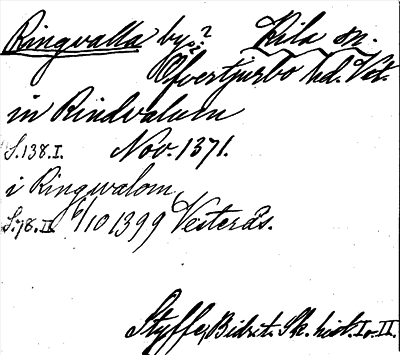 Ringvalla by? Kila sn.
Öfvertjurbo hd. Vst.
in Rindvalum
S. 138. I. Nov. 1371.
i Ringwalom
S. 78. II. 6/10 1399 Vesterås.
Styffe, Bidr. t. Sk. hist. I o. II.